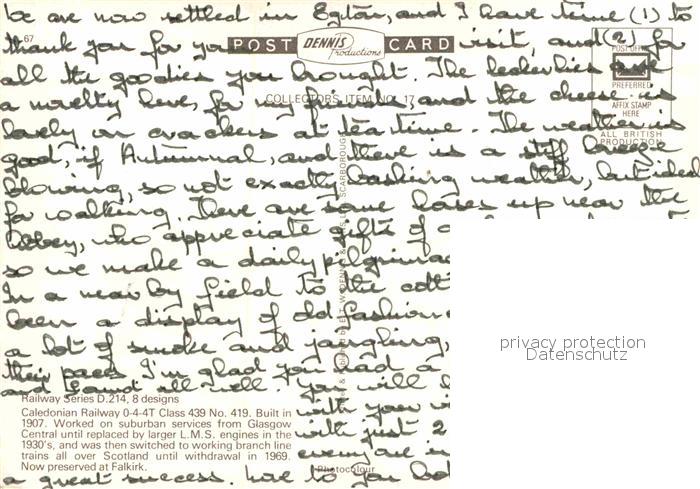 be are now settled in Egton, and I have time (1) to
67
POST DENNIS Productions CARD
thank you for your visit, and (2) for
POST OFFICE
all the goodies you brought. The
PREFERRED
COLLECTORS ITEM NO. 17
AFFIX STAMP
HERE
a novelty here, for my friends, and the cheese is
lovely on crackers at tea time. The weather is
ALL BRITISH
PRODUCTION
good, if Autumnal, and there is a stiff breeze
blowing, so not exactly basking weather, but ideal
for walking. There are some horses up near the
Abbey, who appreciate gifts of
so we make a daily pilgrimage
In a near by field to the
been a display of old fashion
a lot of smoke and jangling,
privacy protection
Datenschutz
their paces I'm glad you had a
and found all well. You will
Railway Series D.214, 8 designs
Caledonian Railway 0-4-4T Class 439 No. 419. Built in
1907. Worked on suburban services from Glasgow
Central until replaced by larger L.M.S. engines in the
1930's, and was then switched to working branch line
trains all over Scotland until withdrawal in 1969.
Now preserved at Falkirk.
with your
with just 2
are in
Photocolour
a great success. Love to you